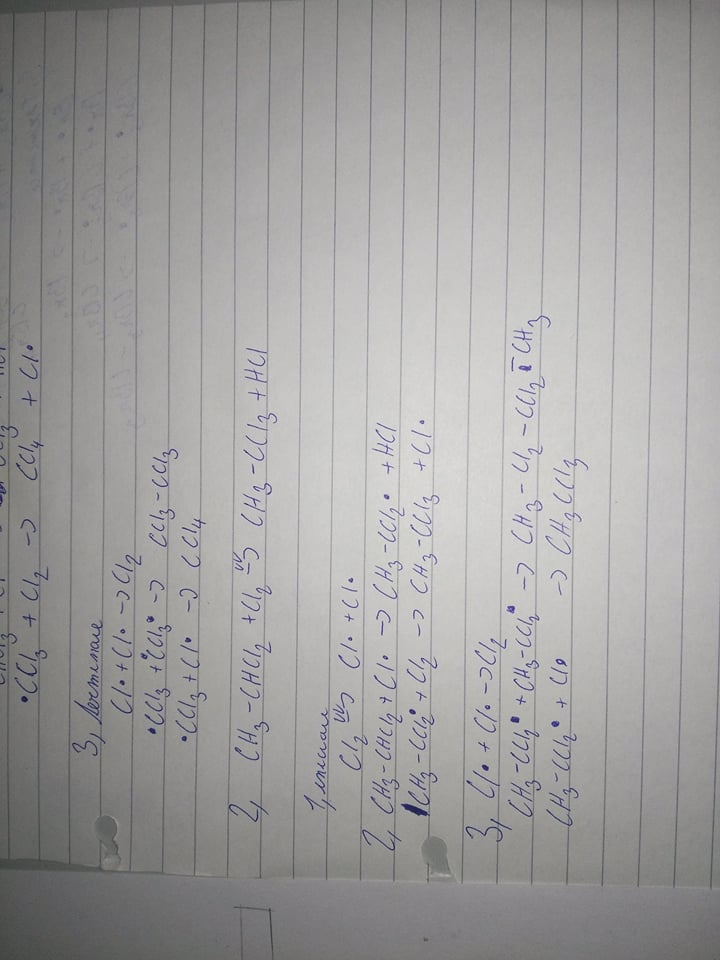 •CCl3 + Cl2 → CCl4 + Cl•
3,
Cl• + Cl• → Cl2
•CCl3 + •CCl3 → CCl3-CCl3
•CCl3 + Cl• → CCl4
2, CH3-CHCl2 + Cl2 UV→ CH3-CCl3 + HCl
1,
Cl2 UV→ Cl• + Cl•
2, CH3-CHCl2 + Cl• → CH3-CCl2• + HCl
CH3-CCl2• + Cl2 → CH3-CCl3 + Cl•
3, Cl• + Cl• → Cl2
CH3-CCl2• + CH3-CCl2• → CH3-Cl2-CCl2-CH3
CH3-CCl2• + Cl• → CH3CCl3